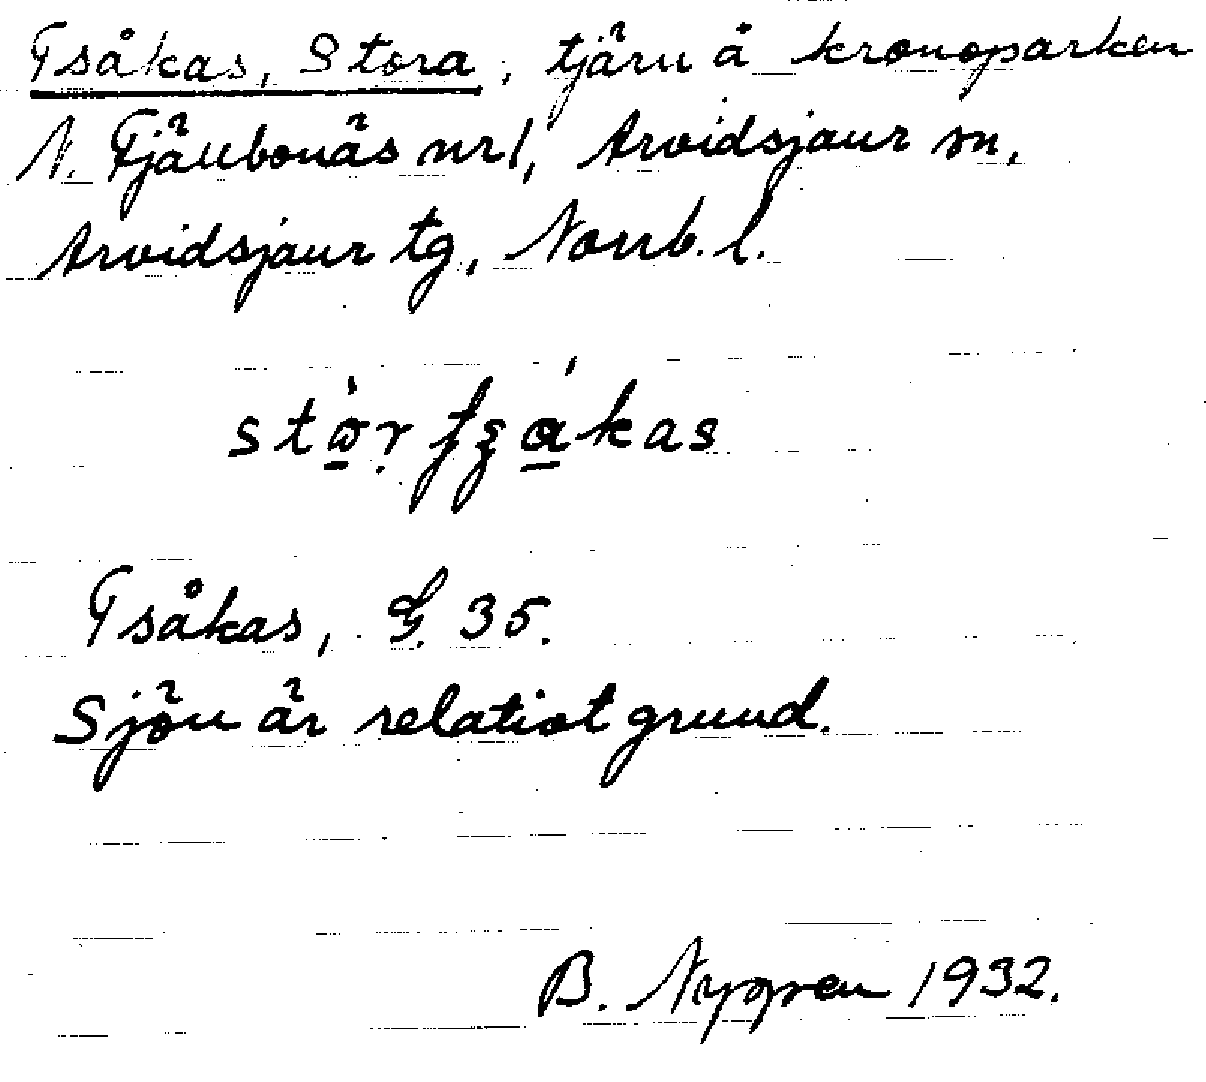 Tsåkas, Stora, tjärn å kronoparken
N. Fjällbonäs nr 1, Arvidsjaur sn,
Arvidsjaur tg, Norrb. l.
Tsåkas, G. 35.
Sjön är relativt grund.
B. Nygren 1932.